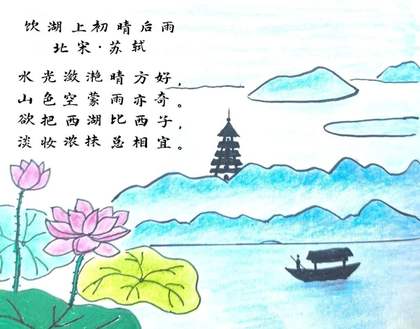 饮湖上初晴后雨
北宋·苏轼
水光潋滟晴方好，
山色空蒙雨亦奇。
欲把西湖比西子，
淡妆浓抹总相宜。